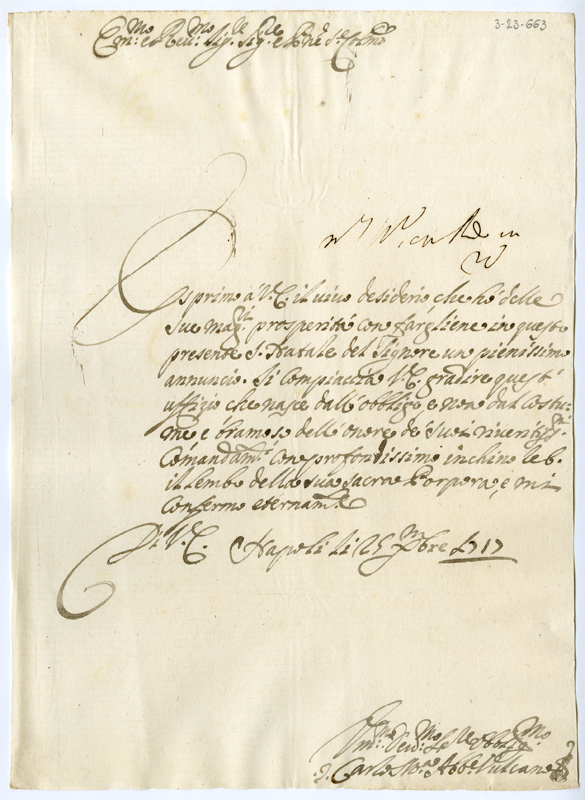 3-23-663
Em.mo e Rev.mo Sig.re Sig.re e P.rne Col.mo
Esprimo á V.E. il vivo desiderio, che hó delle
sue mag.ri prosperitá con fargliene in questo
presente S. Natale del Signore un pienissimo
annuncio. Si compiaccia V.E. gradire quest'
uffizio che nasce dall'obbligo e non dal costu-
me e bramoso dell'onore de' suoi riveritiss.mi
Comandam.ti con profondissimo inchino le b.
il lembo della sua Sacra Porpora, e mi
confermo eternam.te
Di V.E. Napoli li 25 Xmbre 1717
Um.mo Dev.mo Obblig.mo
D. Carlo M.a Abb.e Vulcano